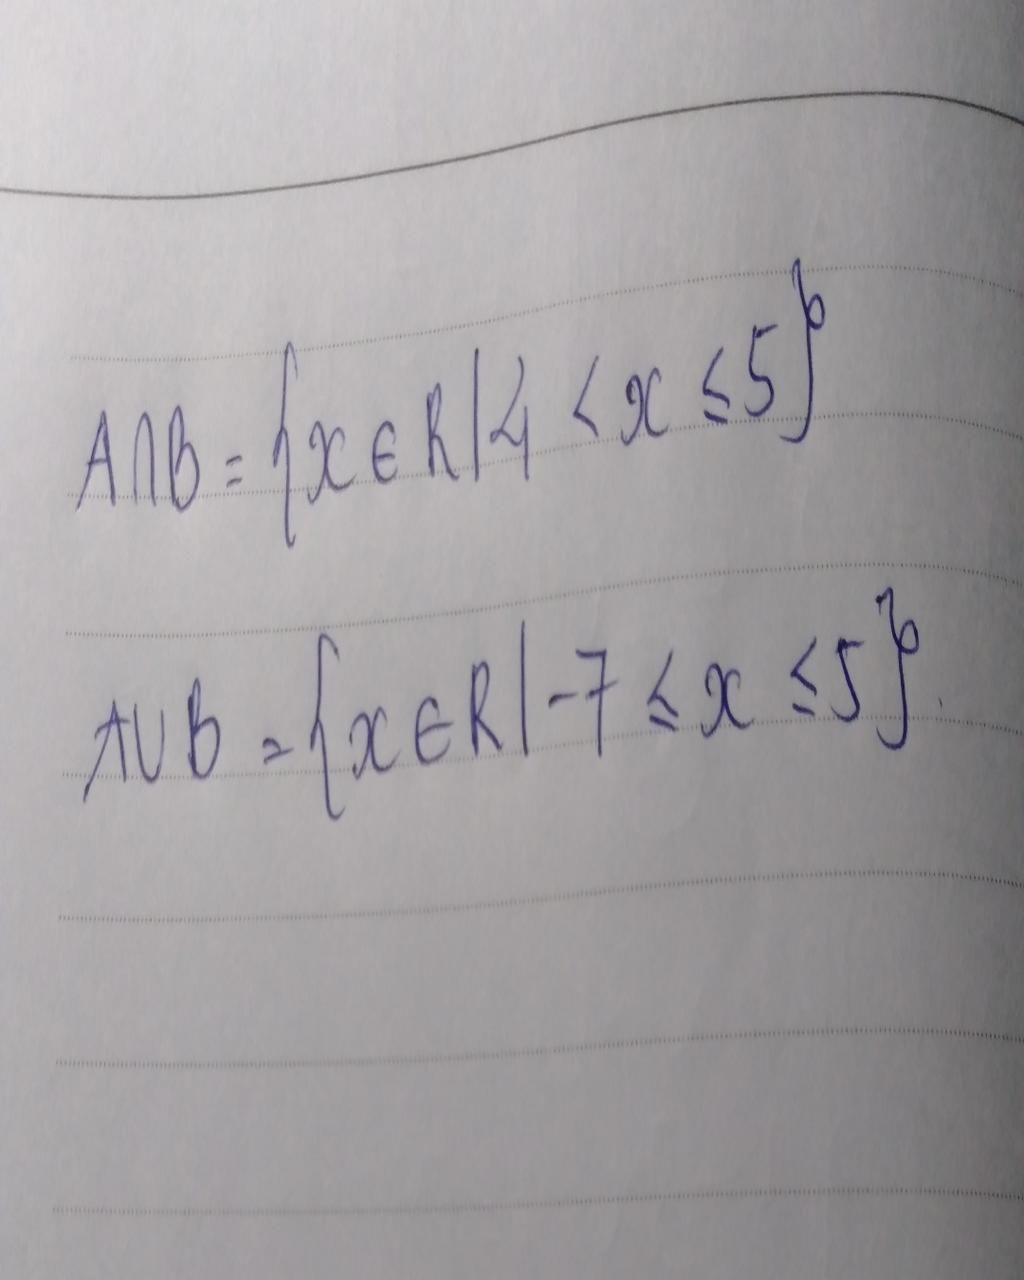 A∩B = {x ∈ R | 4 < x ≤ 5}
A∪B = {x ∈ R | -7 ≤ x ≤ 5}.